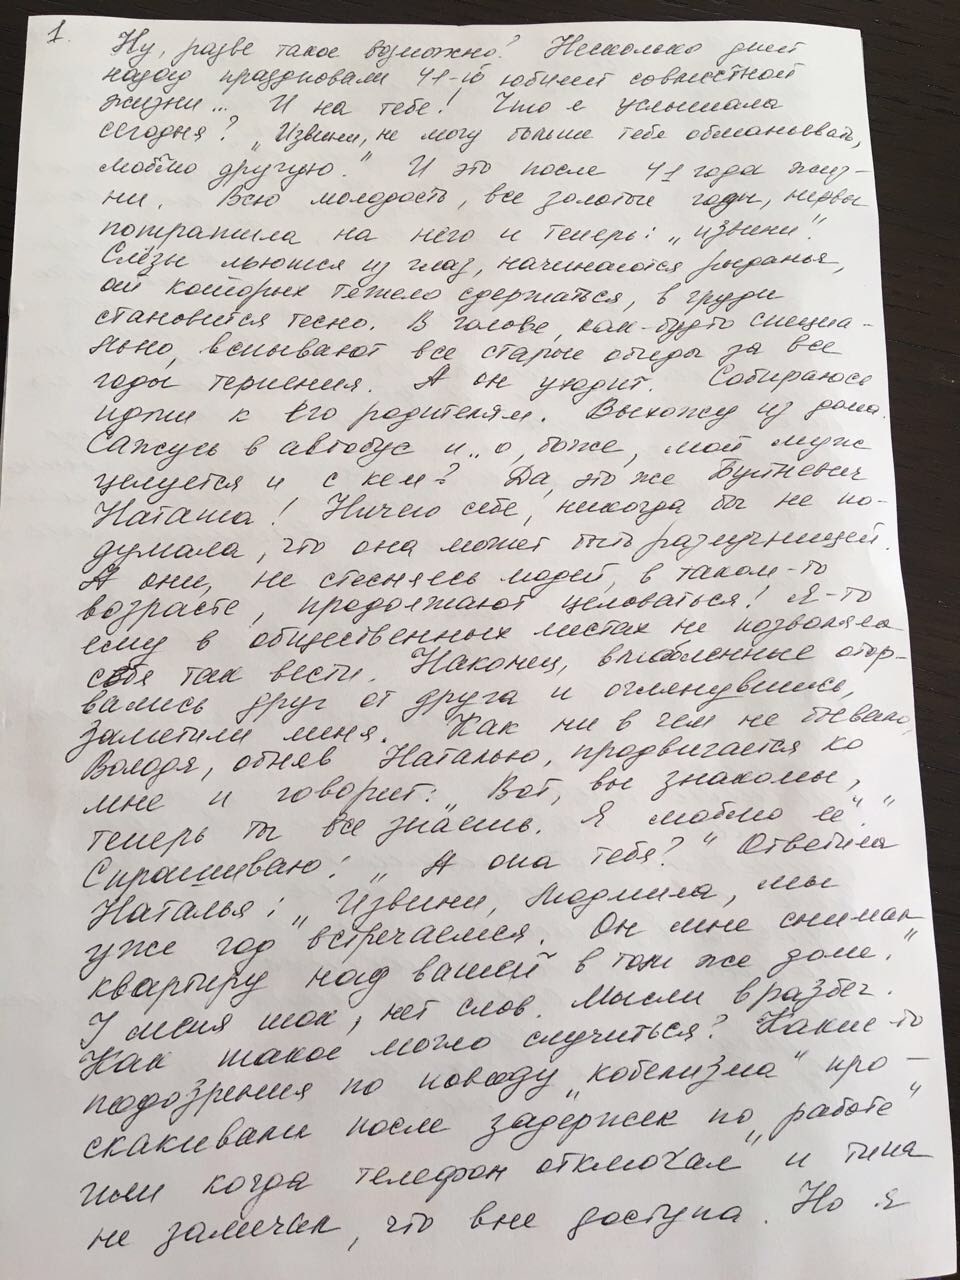 1.
Ну, разве такое возможно? Несколько дней
назад праздновали 41-й юбилей совместной
жизни... И на тебе! Что я услышала
сегодня? „Извини, не могу больше тебя обманывать,
люблю другую." И это после 41 года жиз-
ни. Всю молодость, все золотые годы, нервы
потратила на него и теперь: „извини".
Слёзы льются из глаз, начинаются рыданья,
от которых тяжело сдержаться, в груди
становится тесно. В голове, как-будто специа-
льно, всплывают все старые обиды за все
годы терпения. А он уходит. Собираюсь
идти к его родителям. Выхожу из дома.
Сажусь в автобус и.. о, боже, мой муж
целуется и с кем? Да, это же Бутневич
Наташа! Ничего себе, никогда бы не по-
думала, что она может быть разлучницей.
А они, не стесняясь людей, в таком-то
возрасте, продолжают целоваться! Я-то
ему в общественных местах не позволяла
себя так вести. Наконец, влюбленные отор-
вались друг от друга и оглянувшись,
заметили меня. Как ни в чем не бывало,
Володя, обняв Наталью, продвигается ко
мне и говорит: „Вот, вы знакомы,
теперь ты все знаешь. Я люблю её".
Спрашиваю: „А она тебя?" Ответила
Наталья: „Извини, Людмила, мы
уже год встречаемся. Он мне снимал
квартиру над вашей в том же доме."
У меня шок, нет слов. Мысли вразбег.
Как такое могло случиться? Какие-то
подозрения по поводу „кобелизма" про-
скакивали после задержек по „работе"
или когда телефон отключал и типа
не замечал, что вне доступа. Но я